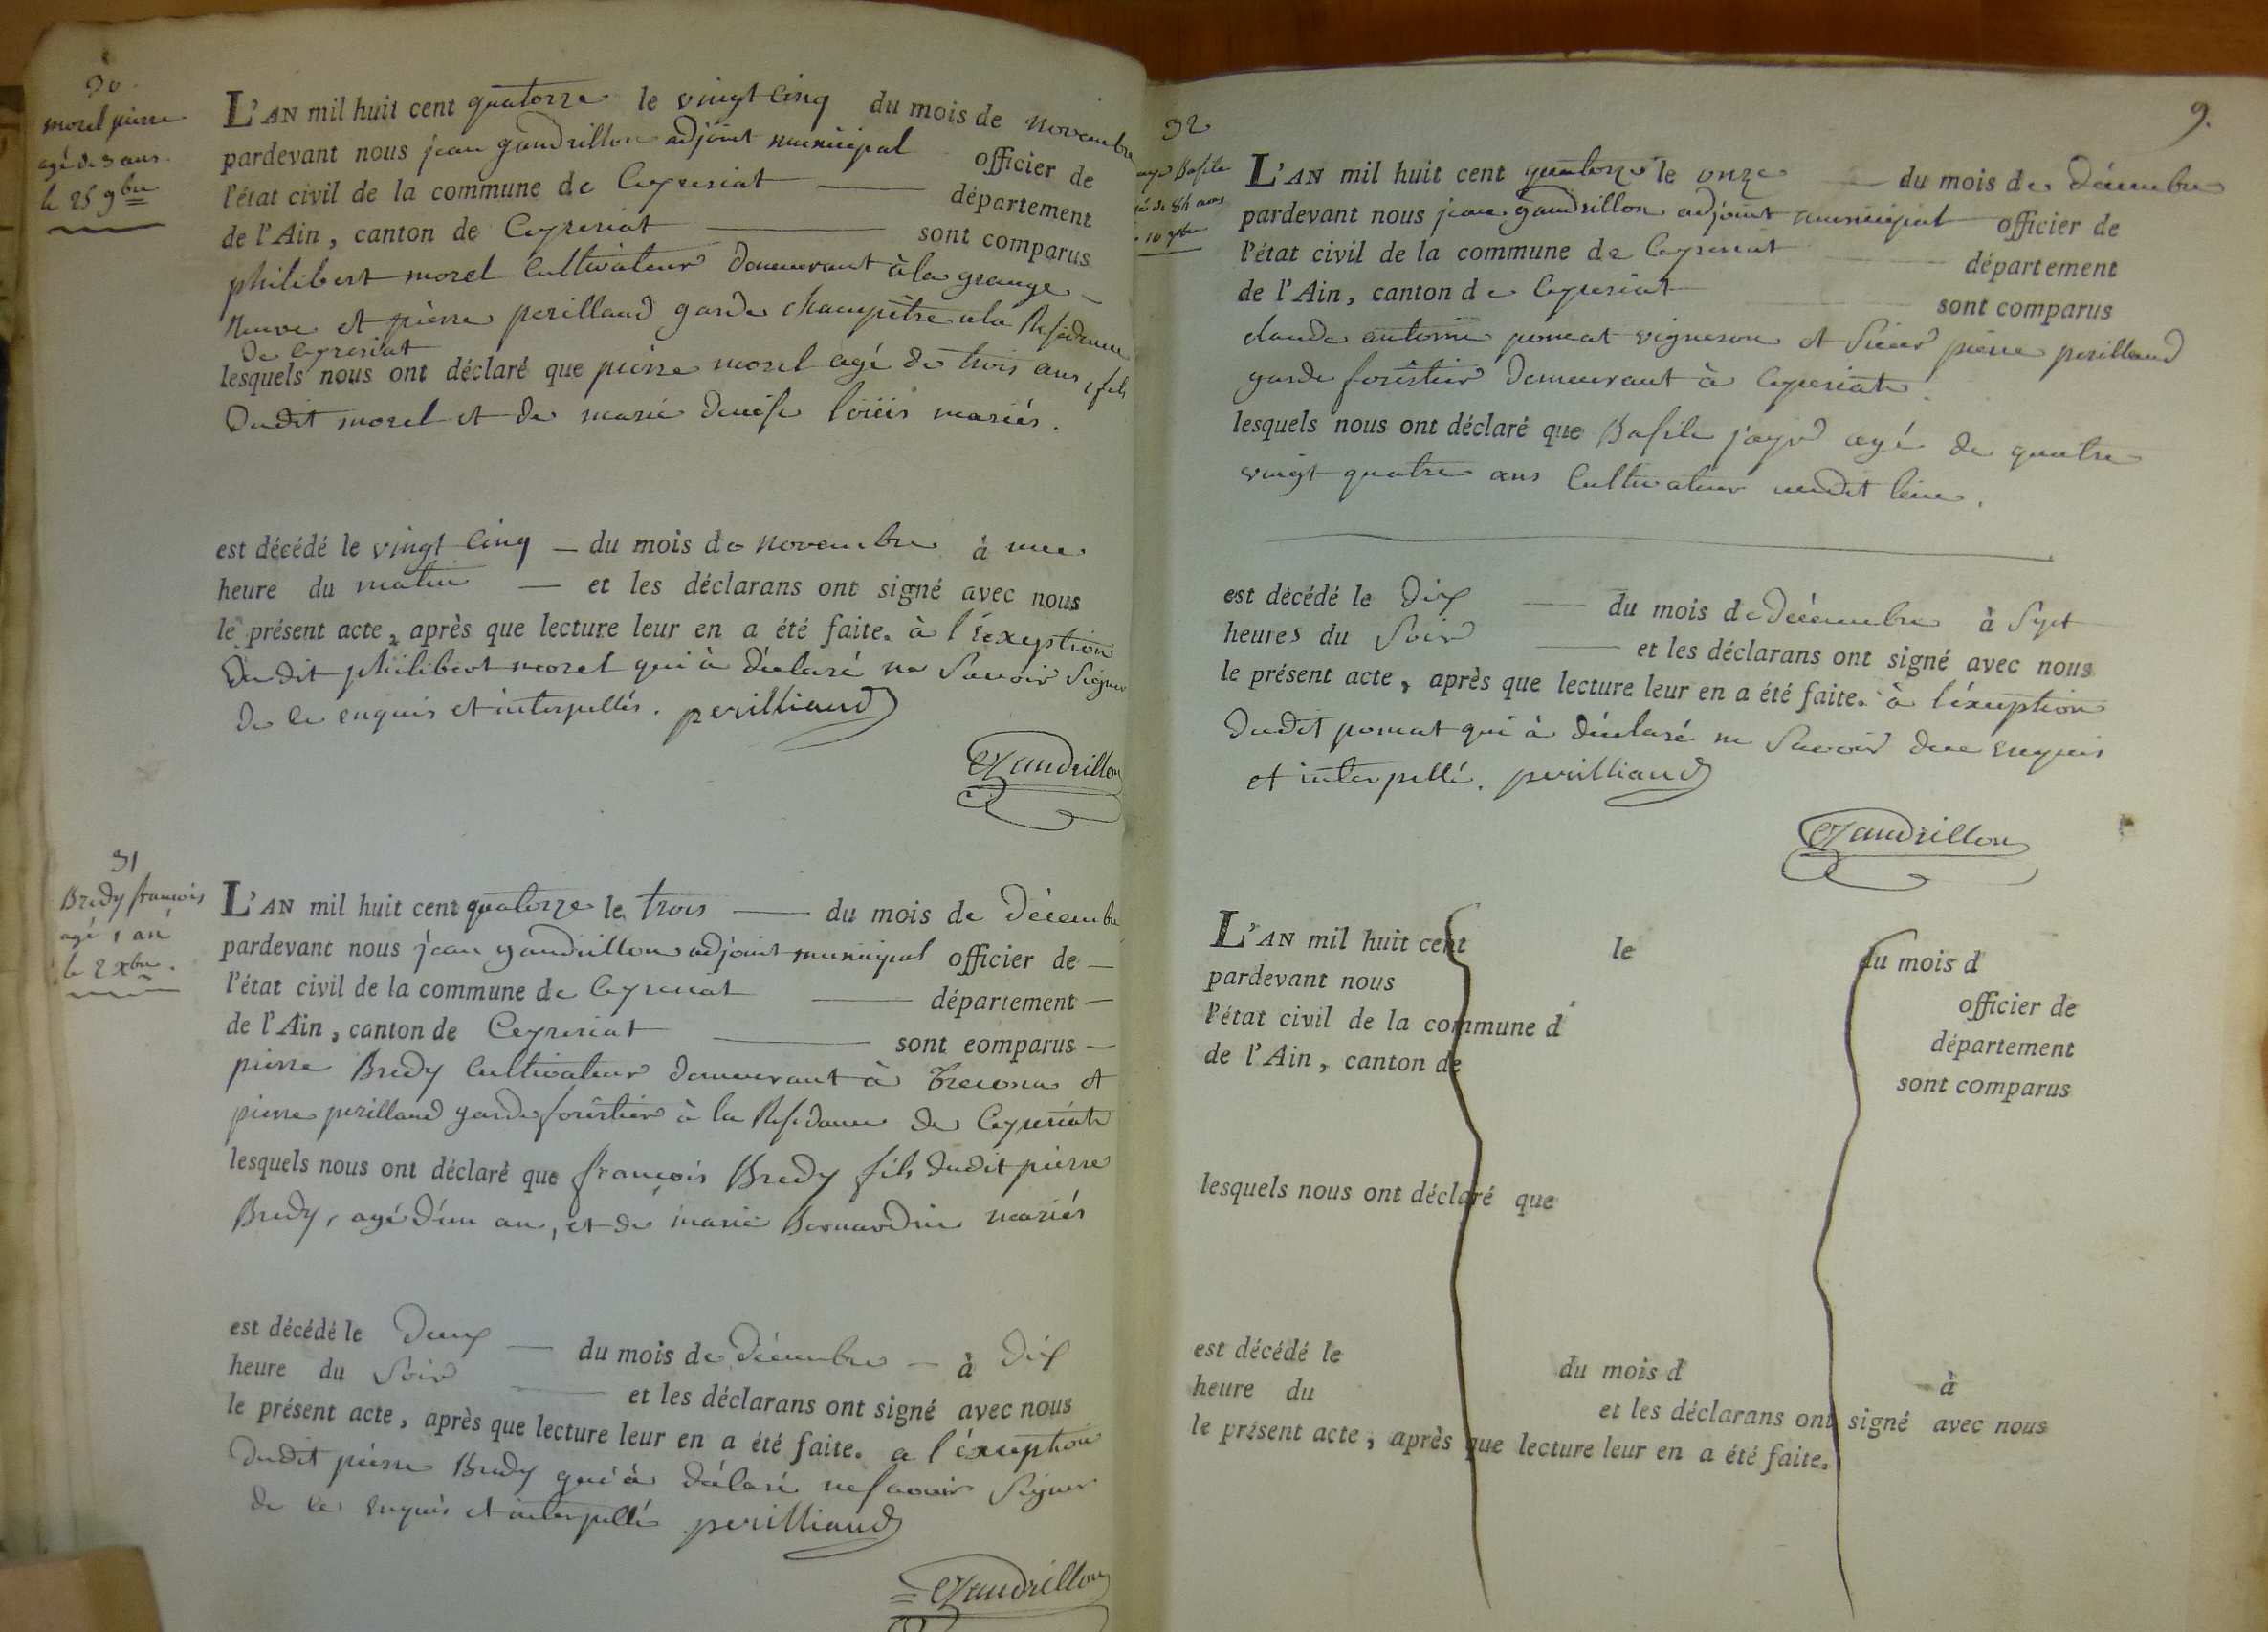 30
morel pierre
agé de 3 ans.
le 25 9bre
L'AN mil huit cent quatorze le vingt cinq du mois de novembre
pardevant nous jean gandrillon adjoint municipal officier de
l'état civil de la commune de Ceyzeriat département
de l'Ain, canton de Ceyzeriat sont comparus
philibert morel Cultivateur demeurant à la grange
neuve et pierre perilland garde champêtre à la Residence
de Ceyzeriat
lesquels nous ont déclaré que pierre morel agé de trois ans, fils
dudit morel et de marie denise loüis mariés.
est décédé le vingt cinq du mois de novembre à une
heure du matin et les déclarans ont signé avec nous
le présent acte, après que lecture leur en a été faite. à l'éxeption
dudit philibert morel qui à déclaré ne Savoir Signer
de ce enquis et interpellés. perilliand
Gandrillon
31
Bredy françois
agé 1 an
le 2 Xbre.
L'AN mil huit cent quatorze le trois du mois de Décembre
pardevant nous jean gandrillon adjoint municipal officier de
l'état civil de la commune de Ceyzeriat département
de l'Ain, canton de Ceyzeriat sont comparus
pierre Bredy Cultivateur demeurant à et
pierre perilland garde forêstier à la Residance de Ceyzeriat
lesquels nous ont déclaré que françois Bredy fils dudit pierre
Bredy, agé d'un an, et de marie Bernardin mariés
est décédé le Deux du mois de Décembre à Dix
heure du Soir et les déclarans ont signé avec nous
le présent acte, après que lecture leur en a été faite. a l'éxception
dudit pierre Bredy qui à déclaré ne Savoir Signer
de ce enquis et interpellé perilliand
Gandrillon
9.
32
Basile
de 84 ans
10
L'AN mil huit cent quatorze le onze du mois de Décembre
pardevant nous jean gandrillon adjoint municipal officier de
l'état civil de la commune de Ceyzeriat département
de l'Ain, canton de Ceyzeriat sont comparus
claude antoine poncat vigneron et Sieur pierre perilland
garde forêstier demeurant à Ceyzeriat.
lesquels nous ont déclaré que Basile jayr agé de quatre
vingt quatre ans Cultivateur audit lieu.
est décédé le Dix du mois de Décembre à Sept
heures du Soir et les déclarans ont signé avec nous
le présent acte, après que lecture leur en a été faite. à l'éxception
dudit poncat qui à déclaré ne Savoir de ce enquis
et interpellé. perilliand
Gandrillon
L'AN mil huit cent le du mois d
pardevant nous officier de
l'état civil de la commune d département
de l'Ain, canton de sont comparus
lesquels nous ont déclaré que
est décédé le du mois d à
heure du et les déclarans ont signé avec nous
le présent acte, après que lecture leur en a été faite.